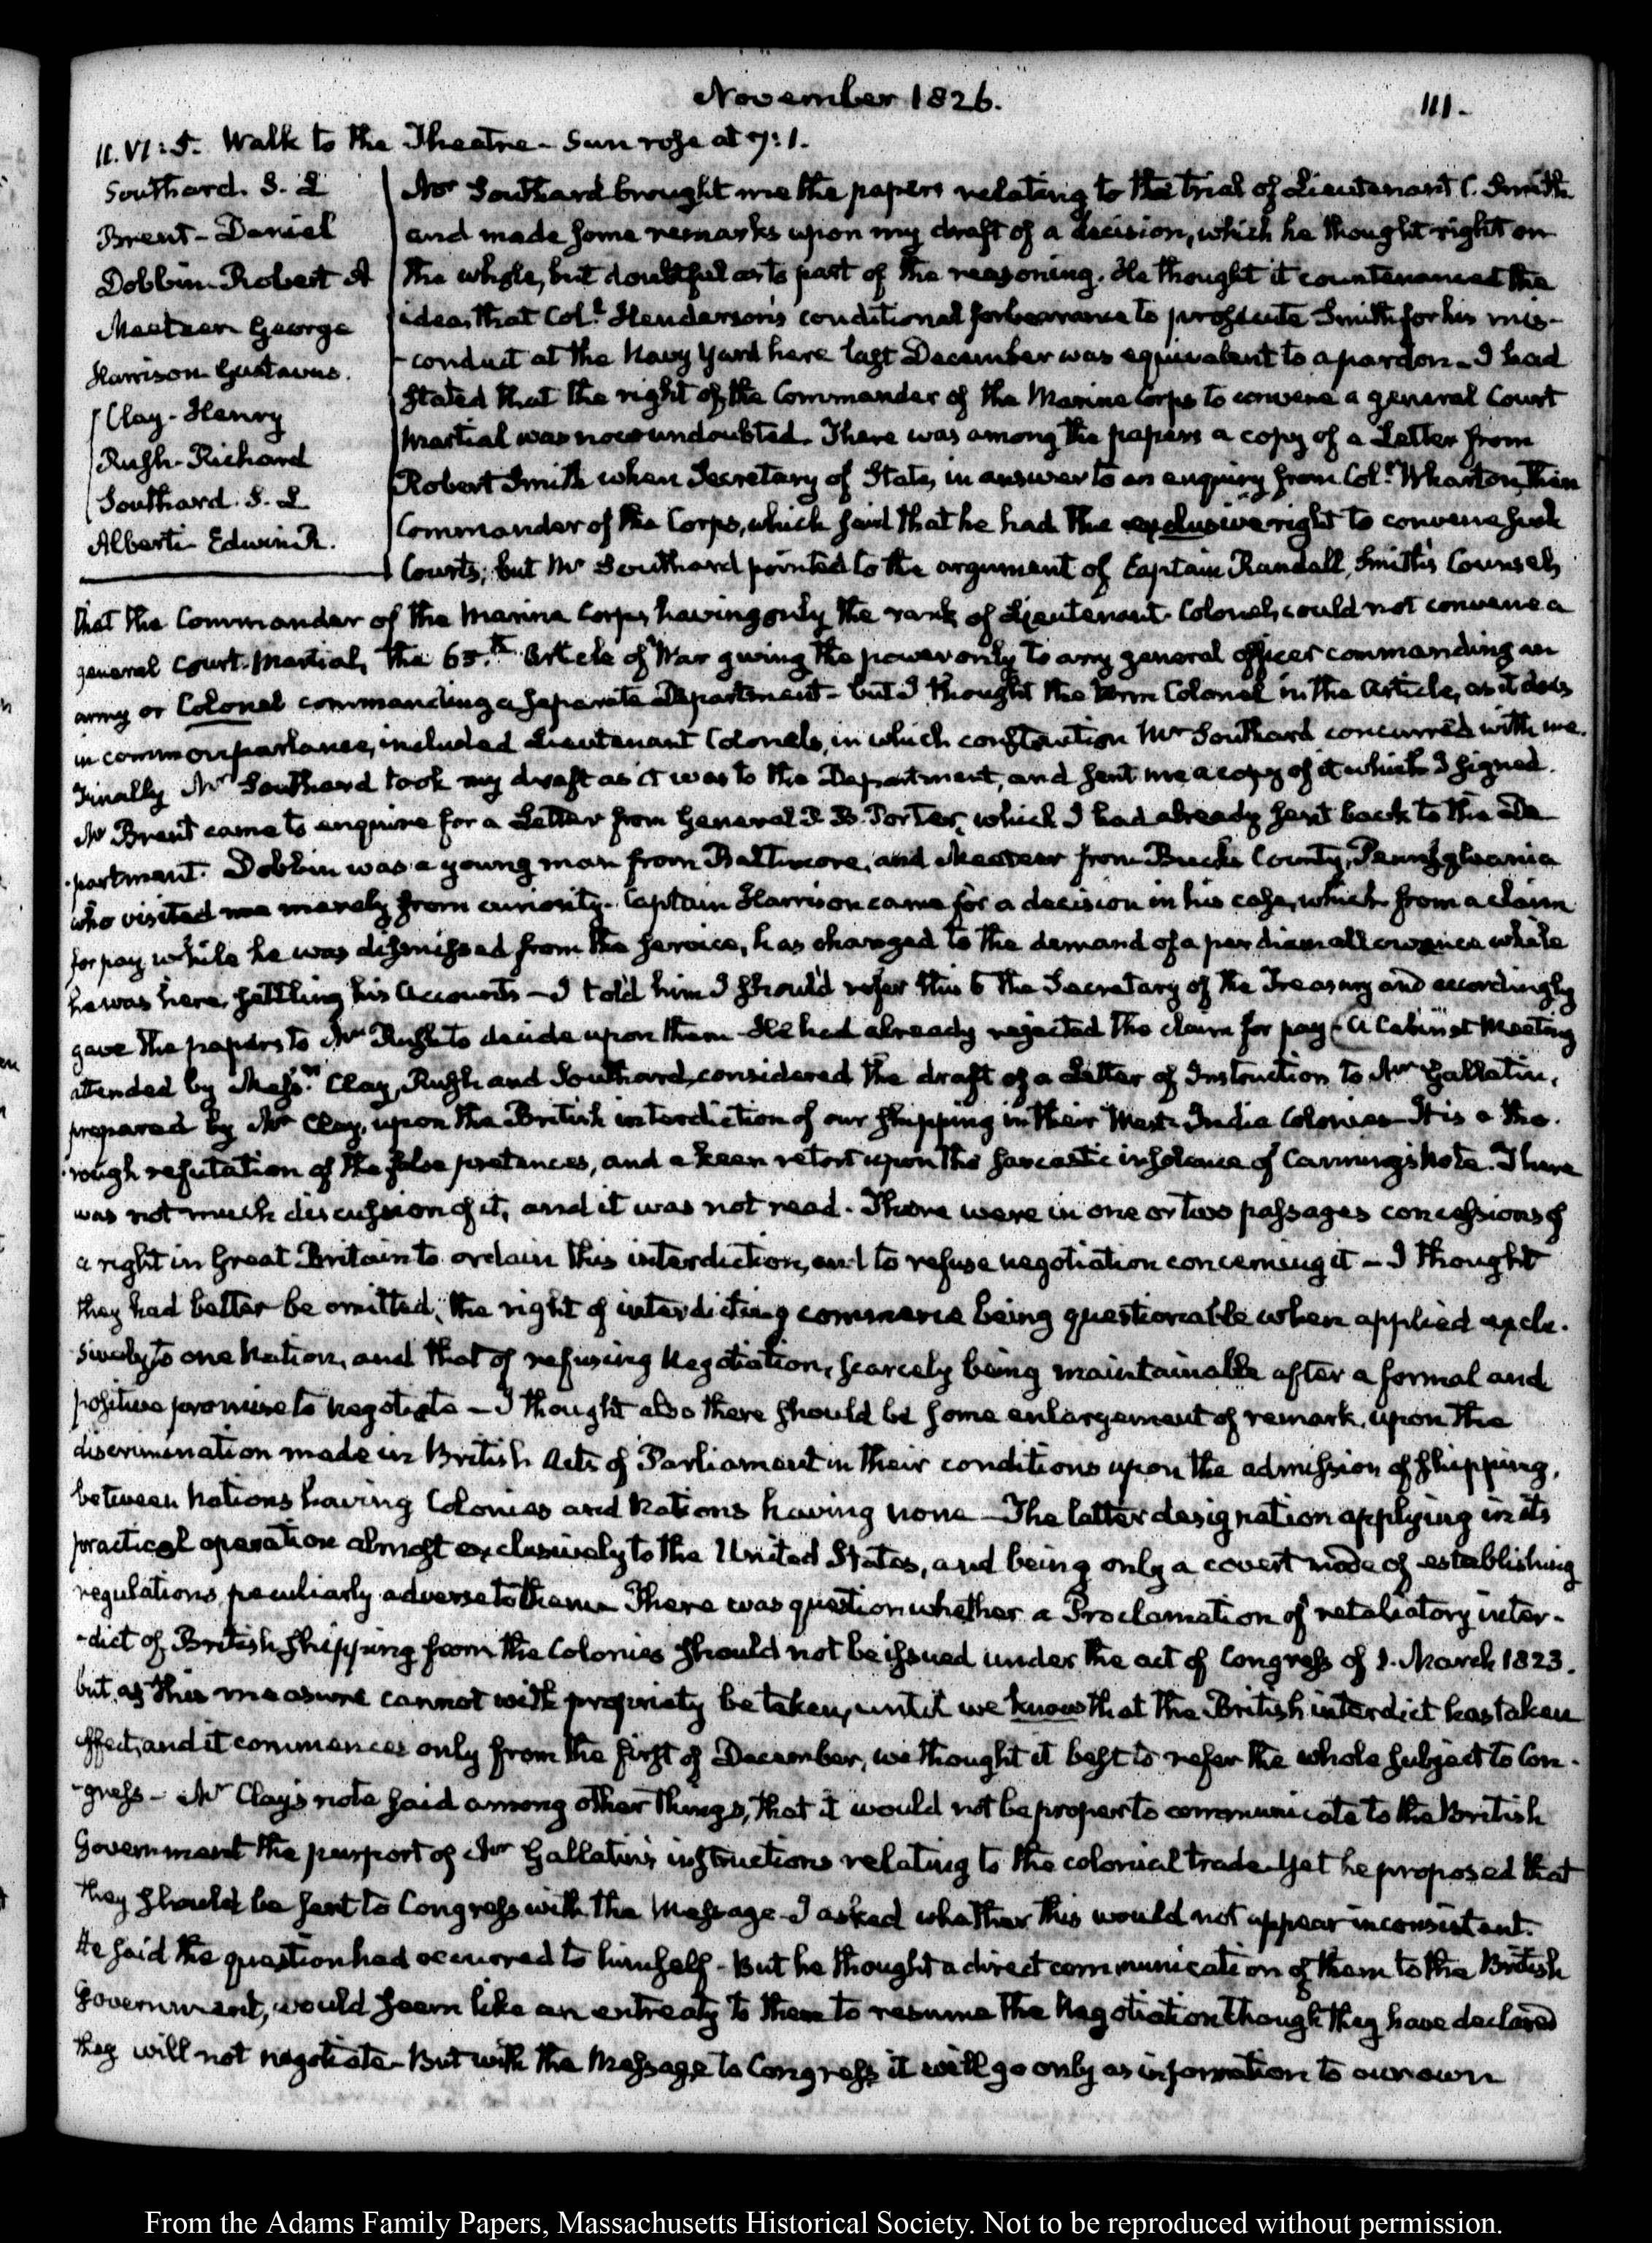 November 1826.
111.
11. VI:5. Walk to the Theatre - Sun rose at 7:1.
Southard. S. L
Brent - Daniel
Dobbin - Robert A
Meeteer George
Harrison Gustavus.
Clay - Henry
Rush - Richard
Southard. S. L
Alberti - Edwin R.
Mr Southard brought me the papers relating to the trial of Lieutenant C. Smith
and made some remarks upon my draft of a decision, which he thought right on
the whole, but doubtful as to part of the reasoning. He thought it countenanced the
idea, that Colt. Henderson's conditional forbearance to prosecute Smith for his mis-
-conduct at the Navy Yard here last December was equivalent to a pardon - I had
stated that the right of the Commander of the Marine Corps to convene a general Court
Martial was now undoubted. There was among the papers a copy of a Letter from
Robert Smith when Secretary of State, in answer to an enquiry from Colt. Wharton, then
Commander of the Corps, which said that he had the exclusive right to convene such
Courts; but Mr Southard pointed to the argument of Captain Randall, Smith's Counsel,
that the Commander of the Marine Corps, having only the rank of Lieutenant-Colonel, could not convene a
general Court-Martial, the 65.th Article of War giving the power only to any general officer commanding an
army or Colonel commanding a separate Department - but I thought the term Colonel in the Article, as it does
in common parlance, included Lieutenant Colonels, in which construction Mr Southard concurred with me.
Finally Mr Southard took my draft as it was to the Department, and sent me a copy of it which I signed.
Mr Brent came to enquire for a Letter from General P. B. Porter, which I had already sent back to the De
-partment. Dobbin was a young man from Baltimore, and Meeteer from Bucks County, Pennsylvania
who visited me merely from curiosity. Captain Harrison came for a decision in his case, which from a claim
for pay while he was dismissed from the service, has changed to the demand of a per diem allowance while
he was here, settling his Accounts - I told him I should refer this to the Secretary of the Treasury and accordingly
gave the papers to Mr Rush to decide upon them - He had already rejected the claim for pay - A Cabinet Meeting
attended by Messrs. Clay, Rush and Southard, considered the draft of a Letter of Instruction to Mr Gallatin,
prepared by Mr Clay, upon the British interdiction of our shipping in their West-India Colonies - It is a tho-
-rough refutation of the false pretences, and a keen retort upon the sarcastic insolence of Canning's Note. There
was not much discussion of it, and it was not read. There were in one or two passages concessions of
a right in Great Britain to ordain this interdiction, and to refuse negotiation concerning it - I thought
they had better be omitted, the right of interdicting commerce being questionable when applied exclu-
-sively to one Nation, and that of refusing Negotiation, scarcely being maintainable after a formal and
positive promise to negotiate - I thought also there should be some enlargement of remark, upon the
discrimination made in British Acts of Parliament in their conditions upon the admission of shipping,
between Nations having Colonies and Nations having none - The latter designation applying in its
practical operation almost exclusively to the United States, and being only a covert mode of establishing
regulations peculiarly adverse to them - There was question whether a Proclamation of retaliatory inter-
-dict of British shipping from the Colonies should not be issued under the act of Congress of 1. March 1823.
but as this measure cannot with propriety be taken, until we know that the British interdict has taken
effect, and it commences only from the first of December, we thought it best to refer the whole subject to Con-
-gress - Mr Clay's note said among other things, that it would not be proper to communicate to the British
Government the purport of Mr Gallatin's instructions relating to the colonial trade. Yet he proposed that
they should be sent to Congress with the Message - I asked whether this would not appear inconsistent.
He said the question had occurred to himself - But he thought a direct communication of them to the British
Government, would seem like an entreaty to them to resume the Negotiation though they have declared
they will not negotiate - But with the Message to Congress it will go only as information to our own
From the Adams Family Papers, Massachusetts Historical Society. Not to be reproduced without permission.